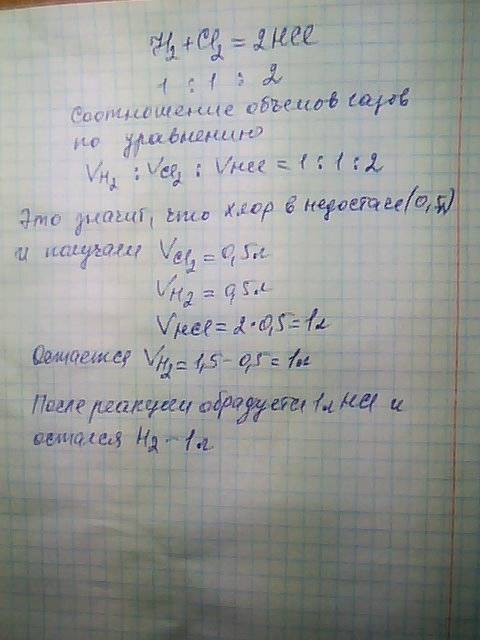 H₂ + Cl₂ = 2HCl
1 : 1 : 2
Соотношение объемов газов
по уравнению
V H₂ : V Cl₂ : V HCl = 1 : 1 : 2
Это значит, что хлор в недостатке (0,5л)
и получаем V Cl₂ = 0,5л
V H₂ = 0,5л
V HCl = 2·0,5 = 1л
Остается V H₂ = 1,5 - 0,5 = 1л
После реакции образуется 1л HCl и
остался H₂ - 1л